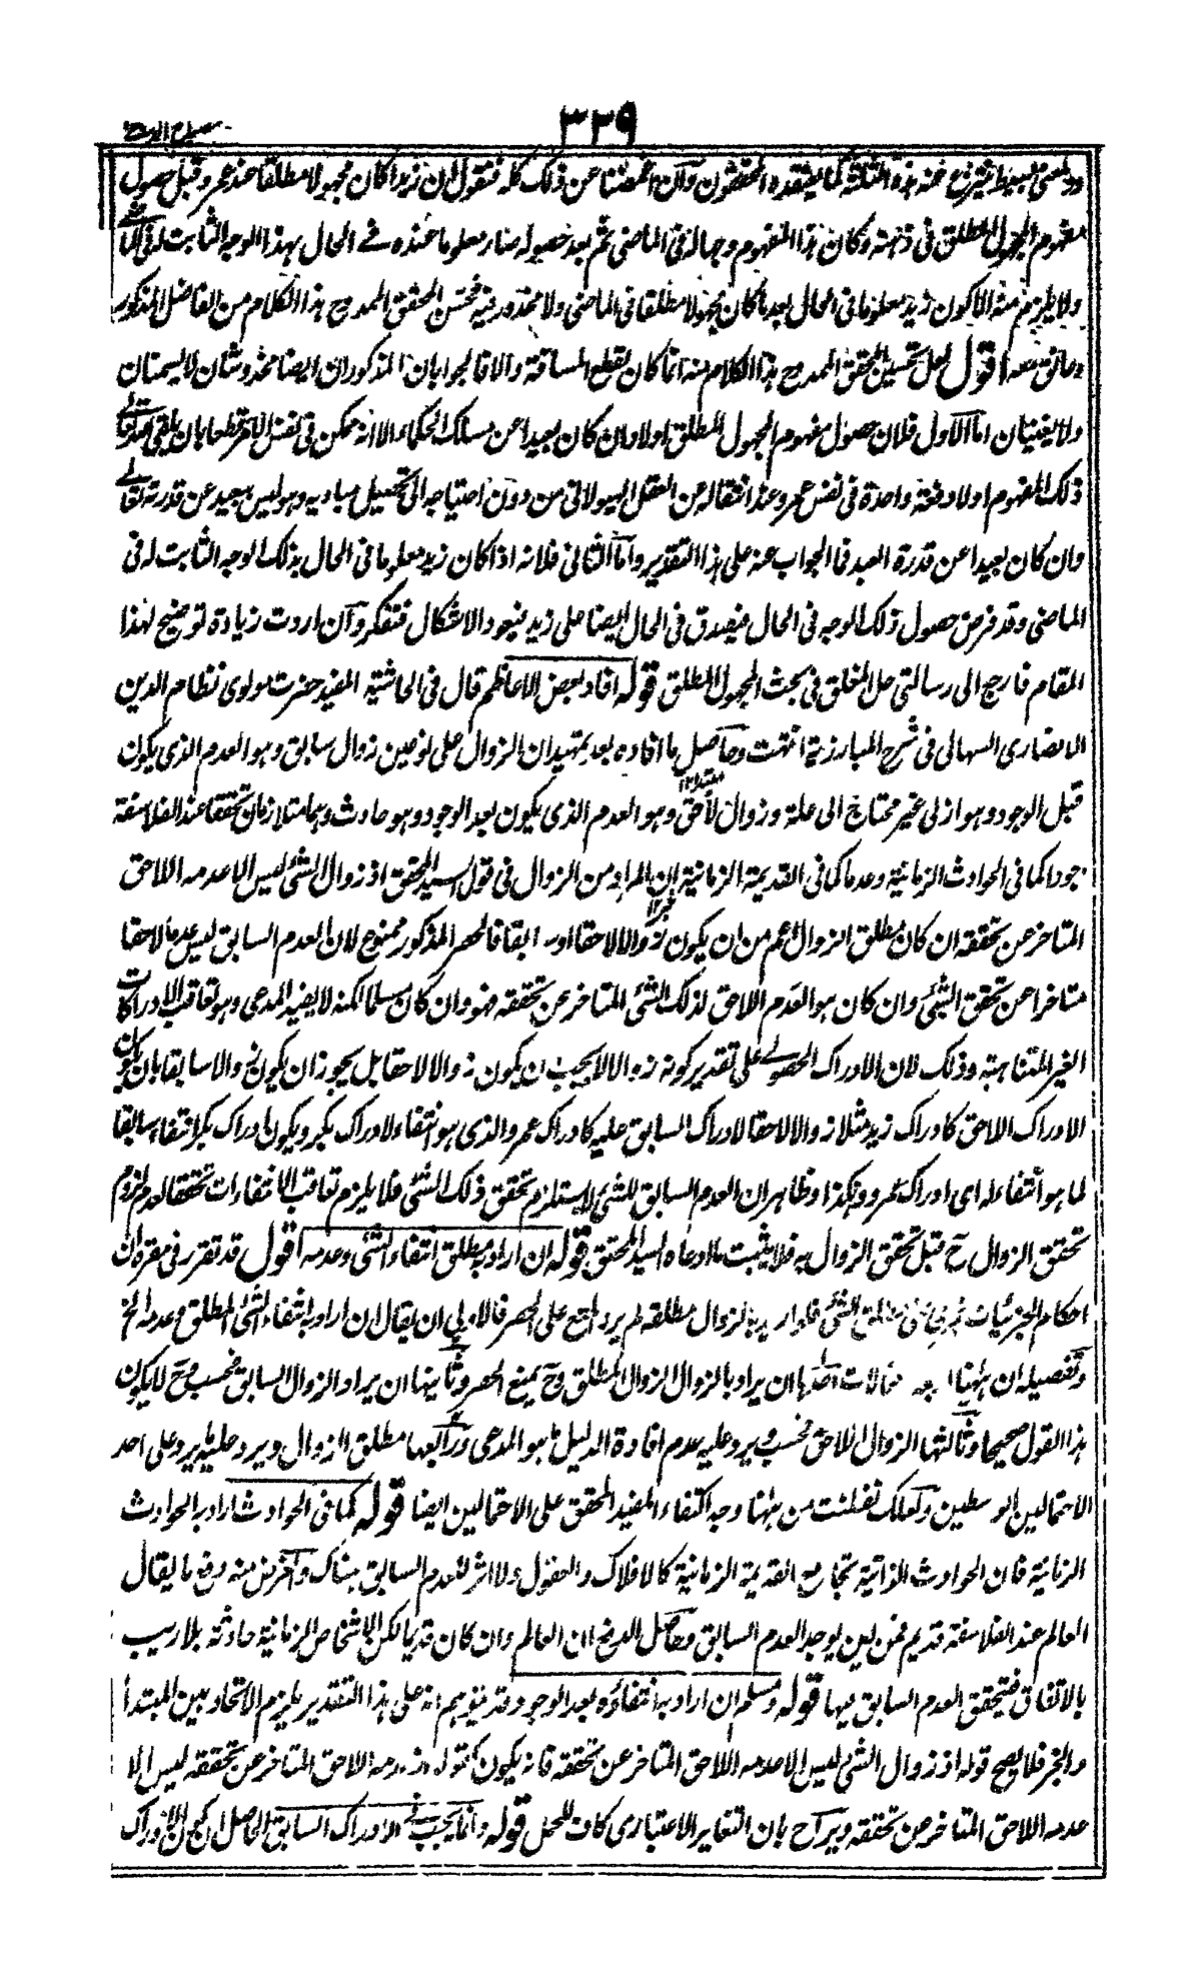 ٣٣٩
مصباح الدجى
ولمعنى بسيط يتفرع عنه هذه الثلثة كما يعتقده المحققون وآن اغمضنا عن ذلك كله فنقول ان زيدا كان مجهولا مطلقا عند عمرو قبل حصول
مفهوم المجهول المطلق فى ذهنه وكان هذا المفهوم وجها له فى الماضى ثم بعد حصوله صار معلوما عنده فے الحال بهذا الوجه الثابت له فى الماضے
ولا يلزم منه الا كون زيد معلوما فى الحال بعد ما كان مجهولا مطلقا فى الماضى ولا محذور فيه فحسّن المحقق الممدوح هذا الكلام من الفاضل المذكور
ومالفق معه اقول لعل تحسين المحقق الممدوح هذا الكلام منه انما كان لقطع المسافة والا فالجوابان المذكوران ايضا مخدوشان لا يسمنان
ولا يغنيان اما الاول فلان حصول مفهوم المجهول المطلق اولا وان كان بعيدا عن مسلك الحكماء الا انه ممكن فى نفس الامر قطعا بان يلقى الله تعالى
ذلك المفهوم اولا دفعة واحدة فى نفس عمرو عند انتقاله عن العقل الهيولانى من دون احتياجه الى تحصيل مباديه وهو ليس ببعيد عن قدرته تعالے
وان كان بعيدا عن قدرة العبد فما الجواب عنه على هذا التقدير واما الثانى فلانه اذا كان زيد معلوما فى الحال بذلك الوجه الثابت له فى
الماضى وقد فرض حصول ذلك الوجه فى الحال فيصدق فى الحال ايضا على زيد فيعود الاشكال فتفكر وآن اردت زيادة توضيح لهذا
المقام فارجع الى رسالتى حل المغلق فى بحث المجهول المطلق قوله افاد بعض الاعاظم قال فى الحاشية المفيد حضرت مولوى نظام الدين
الانصارى السهالى فى شرح المبارزية انتهت وحاصل ما افاده بعد تمهيد ان الزوال على نوعين زوال سابق وهو العدم الذى يكون
قبل الوجود وهو ازلى غير محتاج الى علة وزوال لاحق وهو العدم الذى يكون بعد الوجود وهو حادث وهما متلازمان تحققا عند الفلاسفة
وجودا كما فى الحوادث الزمانية وعدما كما فى القديمة الزمانية ان المراد من الزوال فى قول السيد المحقق اذ زوال الشئ ليس الا عدمه اللاحق
المتاخر عن تحققه ان كان مطلق الزوال اعم من ان يكون زوالا لاحقا او سابقا فالحصر المذكور ممنوع لان العدم السابق ليس عدما لاحقا
متاخرا عن تحقق الشئ وان كان هو العدم اللاحق لذلك الشئ المتاخر عن تحققه فهو وان كان مسلما لكنه لا يفيد المدعى وهو تعاقب الادراكات
الغير المتناهية وذلك لان الادراك الحصولے على تقدير كونه زوالا لا يجب ان يكون زوالا لاحقا بل يجوز ان يكون زوالا سابقا بان يكون
الادراك اللاحق كادراك زيد مثلا زوالا لاحقا لادراك السابق عليه كادراك عمرو الذى هو انتفاء لادراك بكر ويكون ادراك بكر انتفاء سابقا
لما هو انتفاء له اى ادراك عمرو وهكذا وظاهر ان العدم السابق للشئ لا يستلزم تحقق ذلك الشئ فلا يلزم تعاقب الانتفاءات تحققا لعدم لزوم
تحقق الزوال ح قبل تحقق الزوال به فلا يثبت ما ادعاه السيد المحقق قوله ان اراد بمطلق انتفاء الشئ وعدمه اقول قد تقرر فى مقره ان
احكام الجزئيات تجرى على مطلق الشئ فلو اريد بالزوال مطلقه لم يرد المنع على الحصر فالاولى ان يقال ان اراد به انتفاء الشئ المطلق وعدمه الخ
وتفصيله ان ههنا اربعة احتمالات احدها ان يراد بالزوال الزوال المطلق وح يمنع الحصر وثانيها ان يراد الزوال السابق فحسب وح لا يكون
هذا القول صحيحا وثالثها الزوال اللاحق فحسب ويرد عليه عدم افادة الدليل ما هو المدعى ورابعها مطلق الزوال ويرد عليه ما يرد على احد
الاحتمالين الوسطين ولعلك تفطنت من ههنا وجه اكتفاء المفيد المحقق على الاحتمالين ايضا قوله كما فى الحوادث اراد بالحوادث
الزمانية فان الحوادث الذاتية تجامع القديمة الزمانية كالافلاك والعقول ولا اثر للعدم السابق هناك والغرض منه دفع ما يقال
العالم عند الفلاسفة قديم فمن اين يوجد العدم السابق وحاصل الدفع ان العالم وان كان قديما لكن الاشخاص الزمانية حادثة بلا ريب
بالاتفاق فيتحقق العدم السابق فيها قوله ومسلم ان اراد به انتفاءه بعد الوجود وقد يتوهم انه على هذا التقدير يلزم الاتحاد بين المبتدأ
والخبر فلا يصح قوله اذ زوال الشئ ليس الا عدمه اللاحق المتاخر عن تحققه فانه يكون كقوله عدمه اللاحق المتاخر عن تحققه ليس الا
عدمه اللاحق المتاخر عن تحققه ويزاح بان التغاير الاعتبارى كاف للحمل قوله وانما يجب فے الادراك السابق الحاصل ان كون الادراك